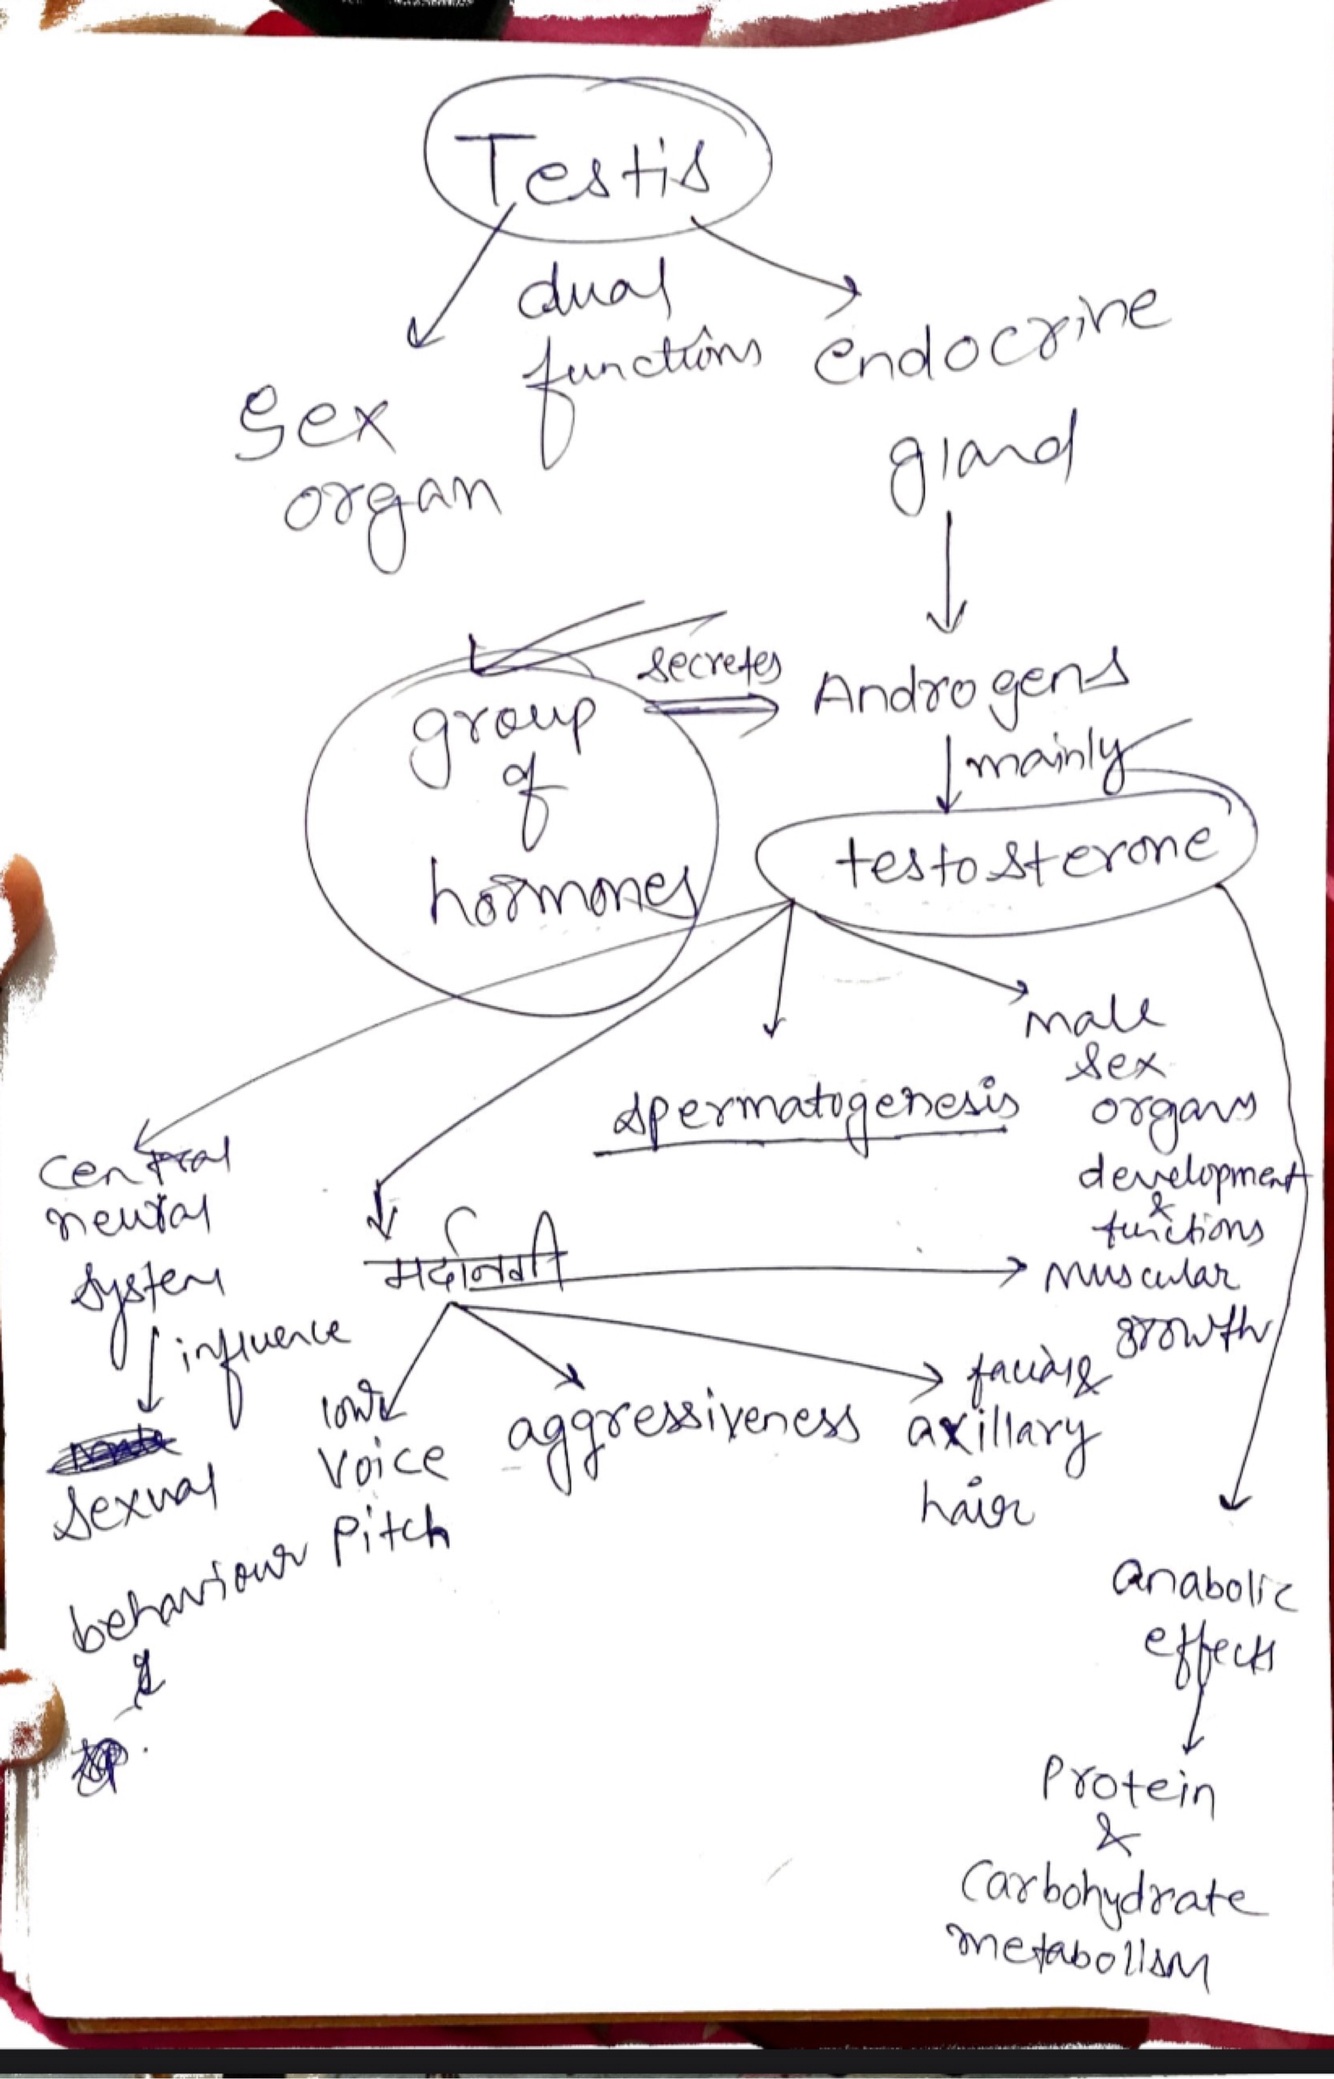 Testis
dual
functions
Sex
organ
endocrine
gland
secretes
group
of
hormones
Androgens
mainly
testosterone
male
sex
organs
development
&
functions
spermatogenesis
central
neural
system
influence
sexual
behaviour
&
मर्दानिगी
muscular
growth
low
voice
pitch
aggressiveness
facial &
axillary
hair
anabolic
effects
Protein
&
Carbohydrate
metabolism